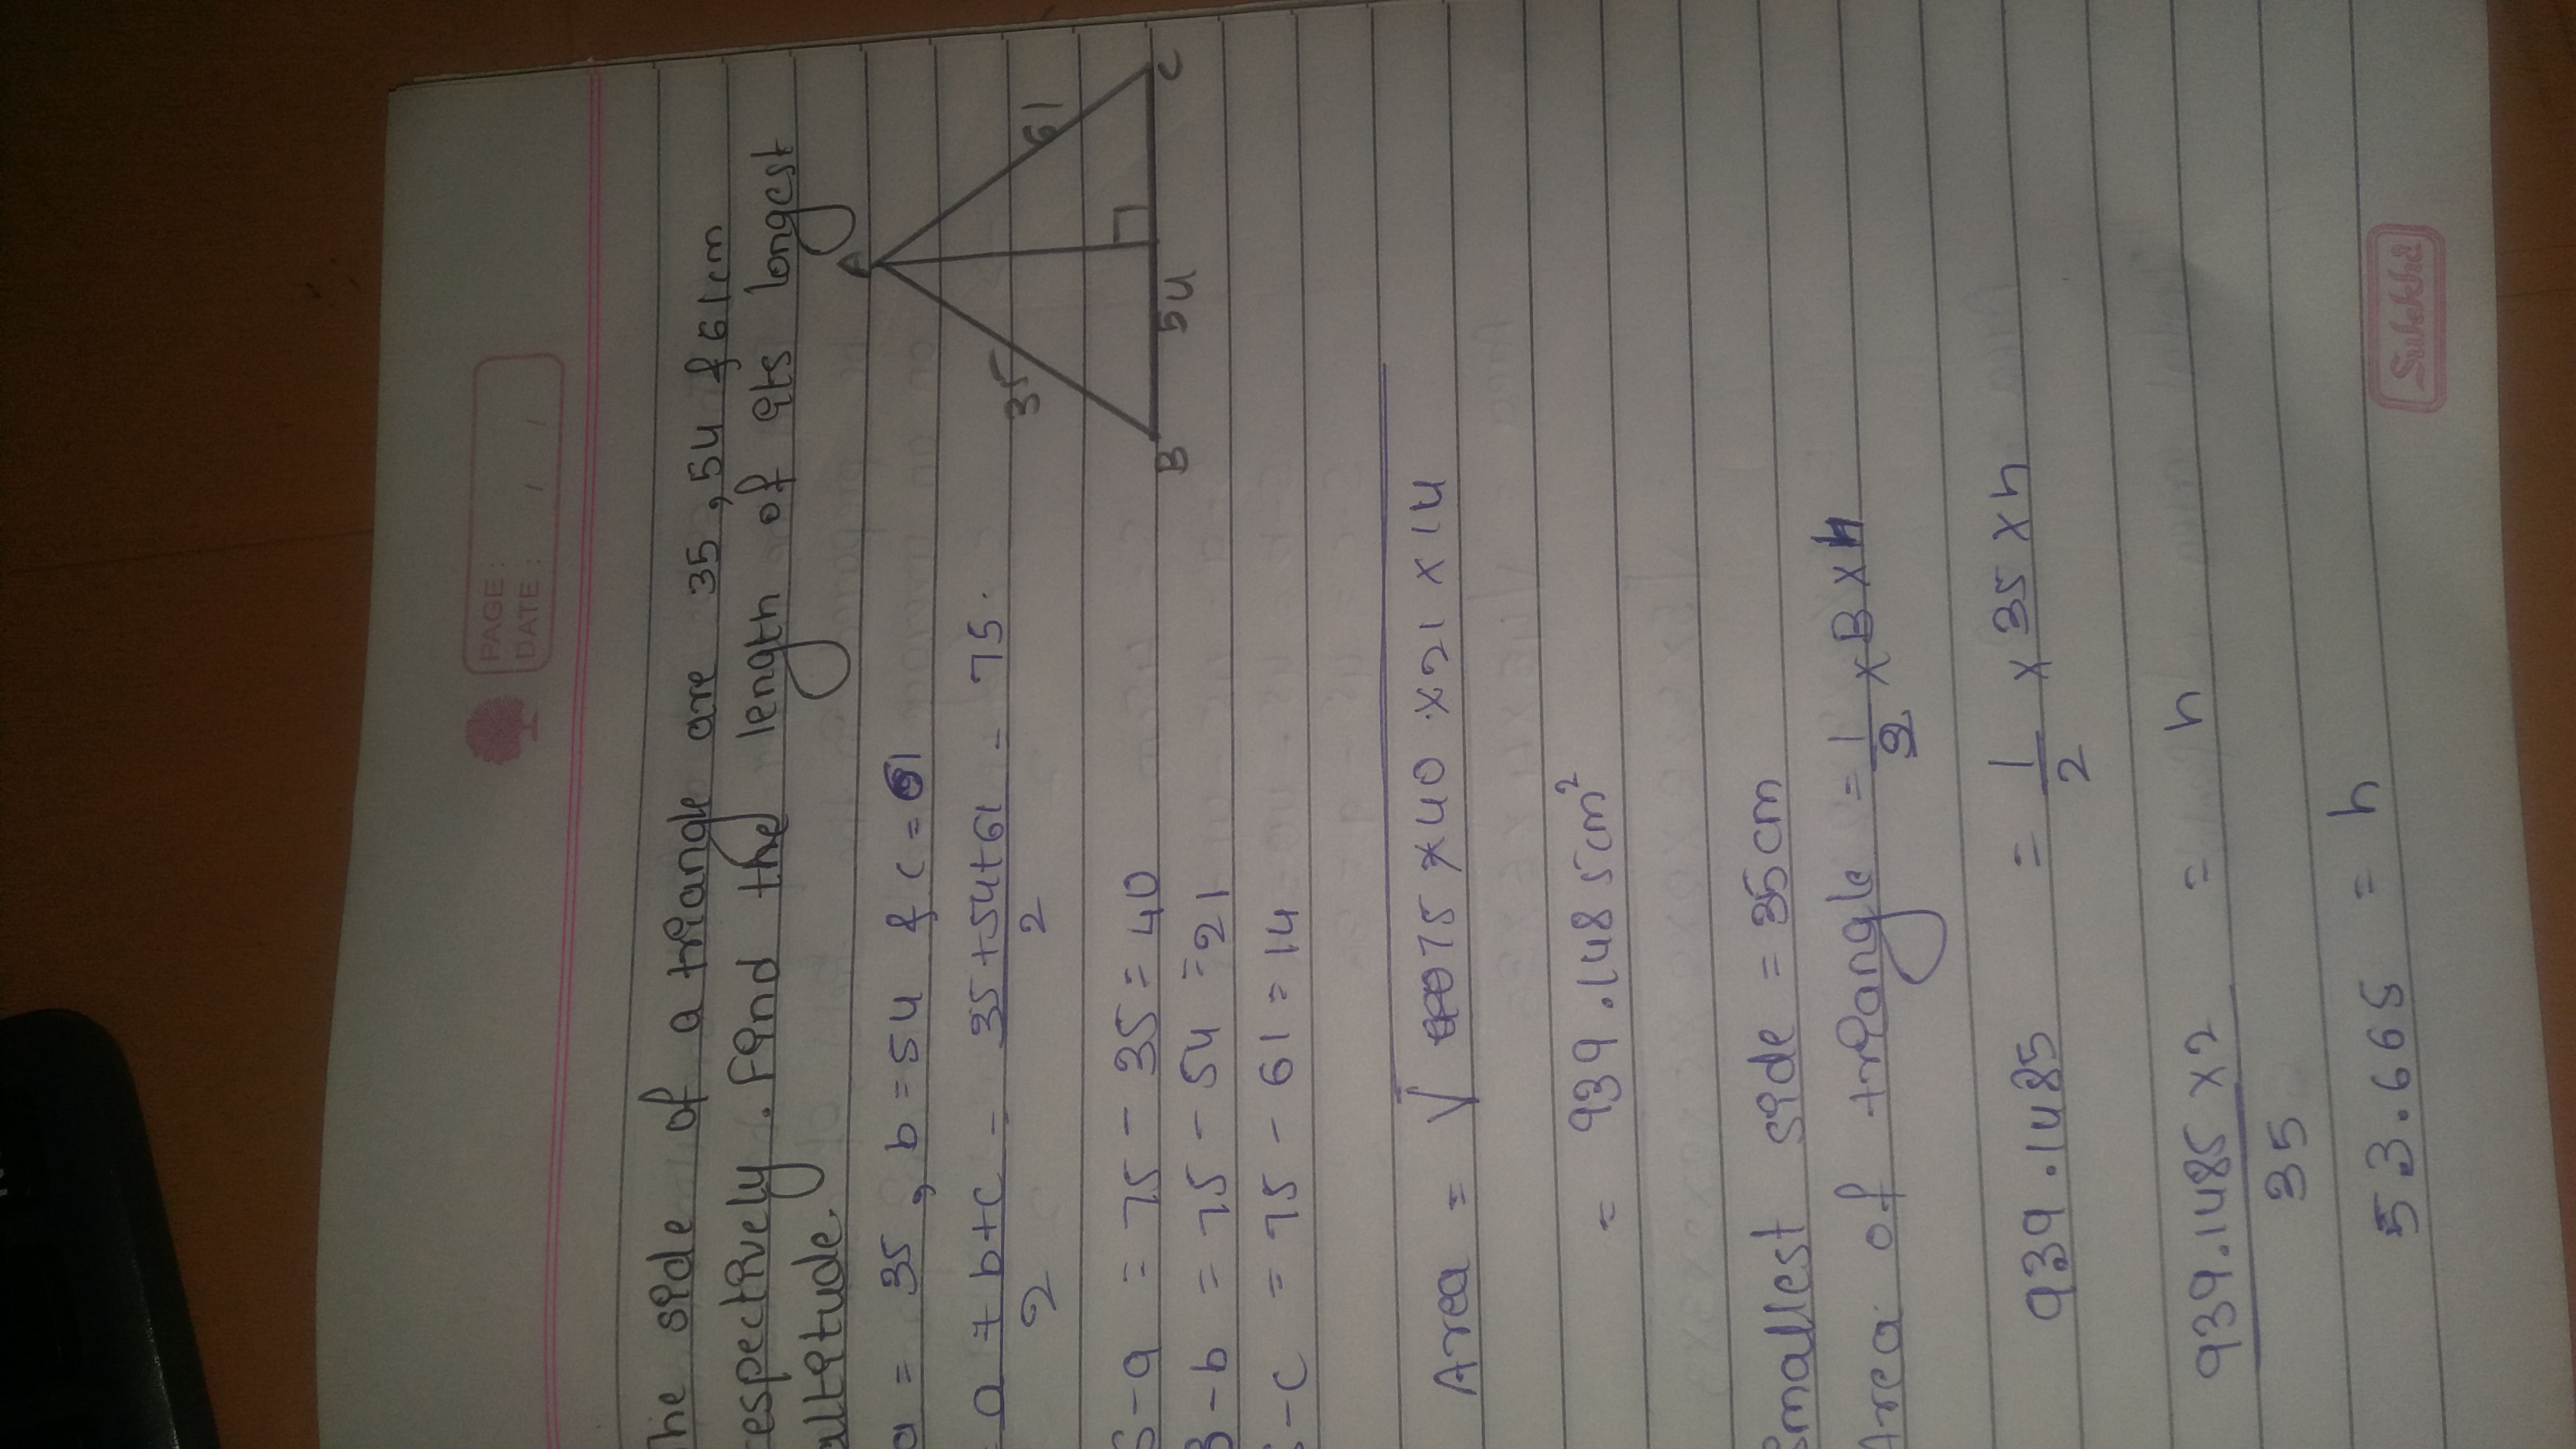 PAGE:
DATE: / /
The side of a triangle are 35, 54 & 61cm
respectively. Find the length of its longest
altitude.
a = 35, b = 54 & c = 61
A
35
61
B
54
C
= a + b + c = 35 + 54 + 61 = 75.
2 2
S - a = 75 - 35 = 40
S - b = 75 - 54 = 21
S - c = 75 - 61 = 14
Area = √ 75 × 40 × 21 × 14
= 939.1485cm²
Smallest side = 35cm
Area of triangle = 1/2 × B × h
939.1485 = 1/2 × 35 × h
939.1485 × 2 = h
35
53.665 = h
Sukkhi